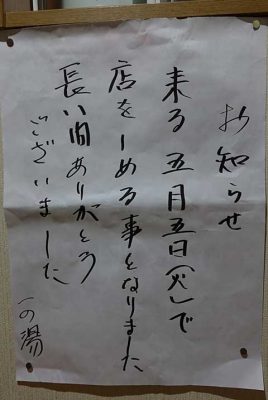 お知らせ
来る 五月五日(火)で
店をしめる事となりました
長い間ありがとう
ございました
一の湯